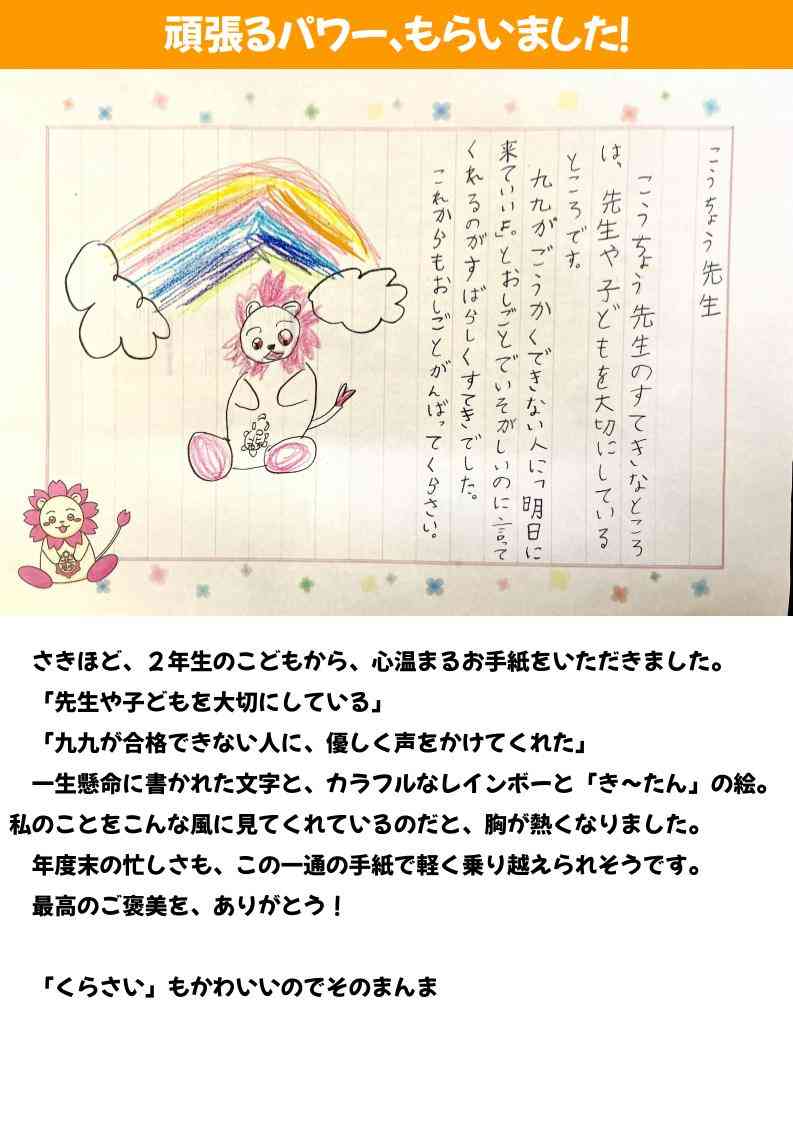 頑張るパワー、もらいました!
こうちょう先生
こうちょう先生のすてきなところ
は、先生や子どもを大切にしている
ところです。
九九がごうかくできない人に「明日に
来ていいよ」。とおしごとでいそがしいのに言って
くれるのがすばらしくすてきでした。
これからもおしごとがんばってくらさい。
さきほど、2年生のこどもから、心温まるお手紙をいただきました。
「先生や子どもを大切にしている」
「九九が合格できない人に、優しく声をかけてくれた」
一生懸命に書かれた文字と、カラフルなレインボーと「き〜たん」の絵。
私のことをこんな風に見てくれているのだと、胸が熱くなりました。
年度末の忙しさも、この一通の手紙で軽く乗り越えられそうです。
最高のご褒美を、ありがとう!
「くらさい」もかわいいのでそのまんま